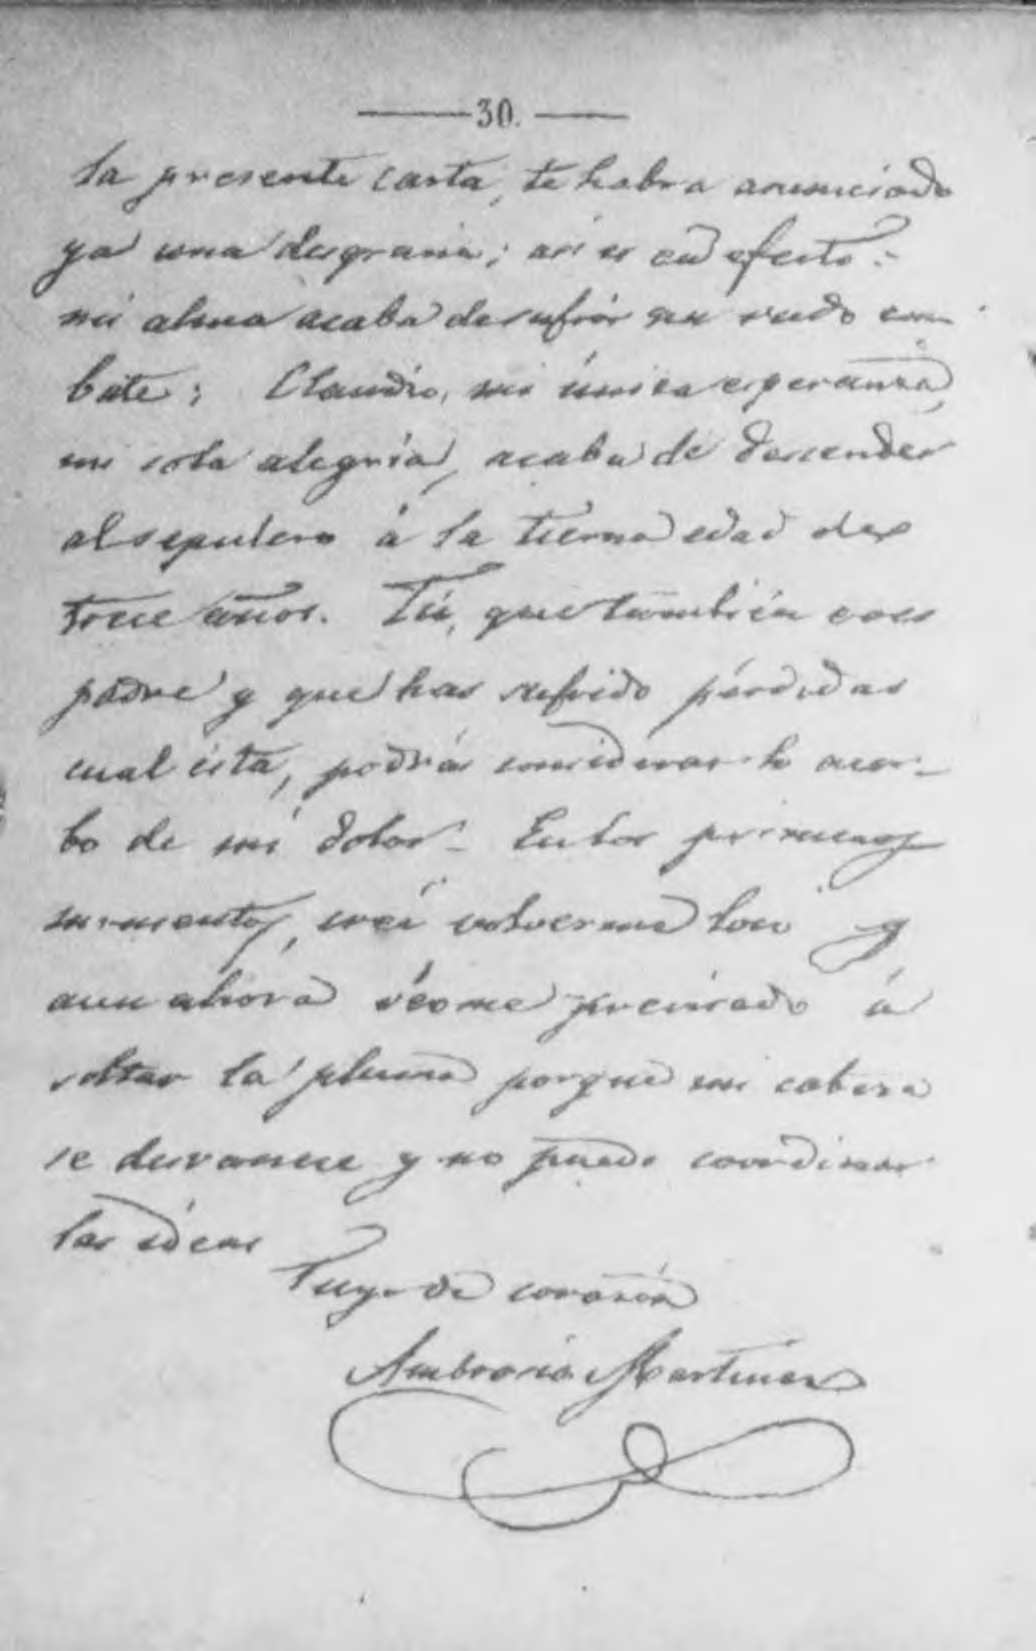 30.
la presente carta, te habra anunciado
ya una desgracia; así es en efecto:
mi alma acaba de sufrir un rudo com
bate; Claudio, mi única esperanza,
mi sola alegría, acaba de descender
al sepulcro á la tierna edad de
trece años. Tú, que también eres
padre y que has sufrido pérdidas
cual ésta, podrás considerar lo acer-
bo de mi dolor. En los primeros
momentos, creí volverme loco y
aun ahora véome precisado á
soltar la pluma porque mi cabeza
se desvanece y no puedo coordinar
las ideas
Tuyo de corazón
Ambrosio Martinez